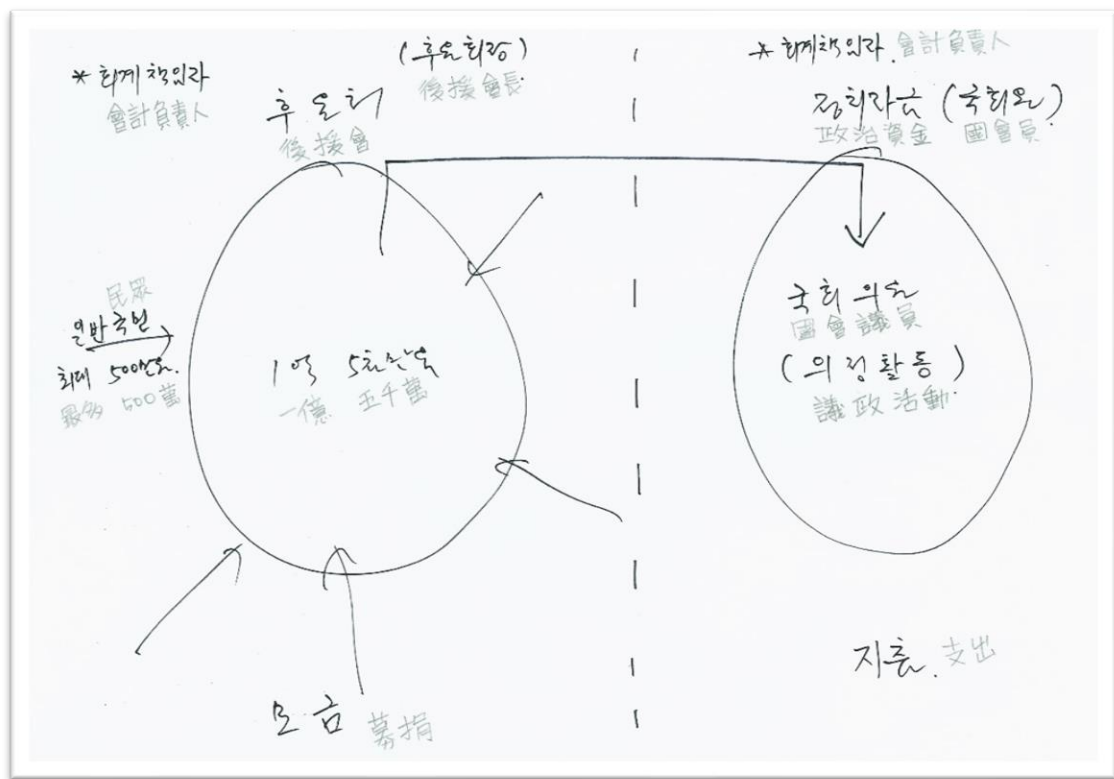 * 회계책임자
會計負責人
(후원회장)
後援會長
후원회
後援會
民眾
일반국민
최대 500만원.
最多 500萬
1억 5천만원
一億 五千萬
모금 募捐
* 회계책임자. 會計負責人
정치자금 (국회의원)
政治資金 國會員
국회의원
國會議員
(의정활동)
議政活動
지출. 支出